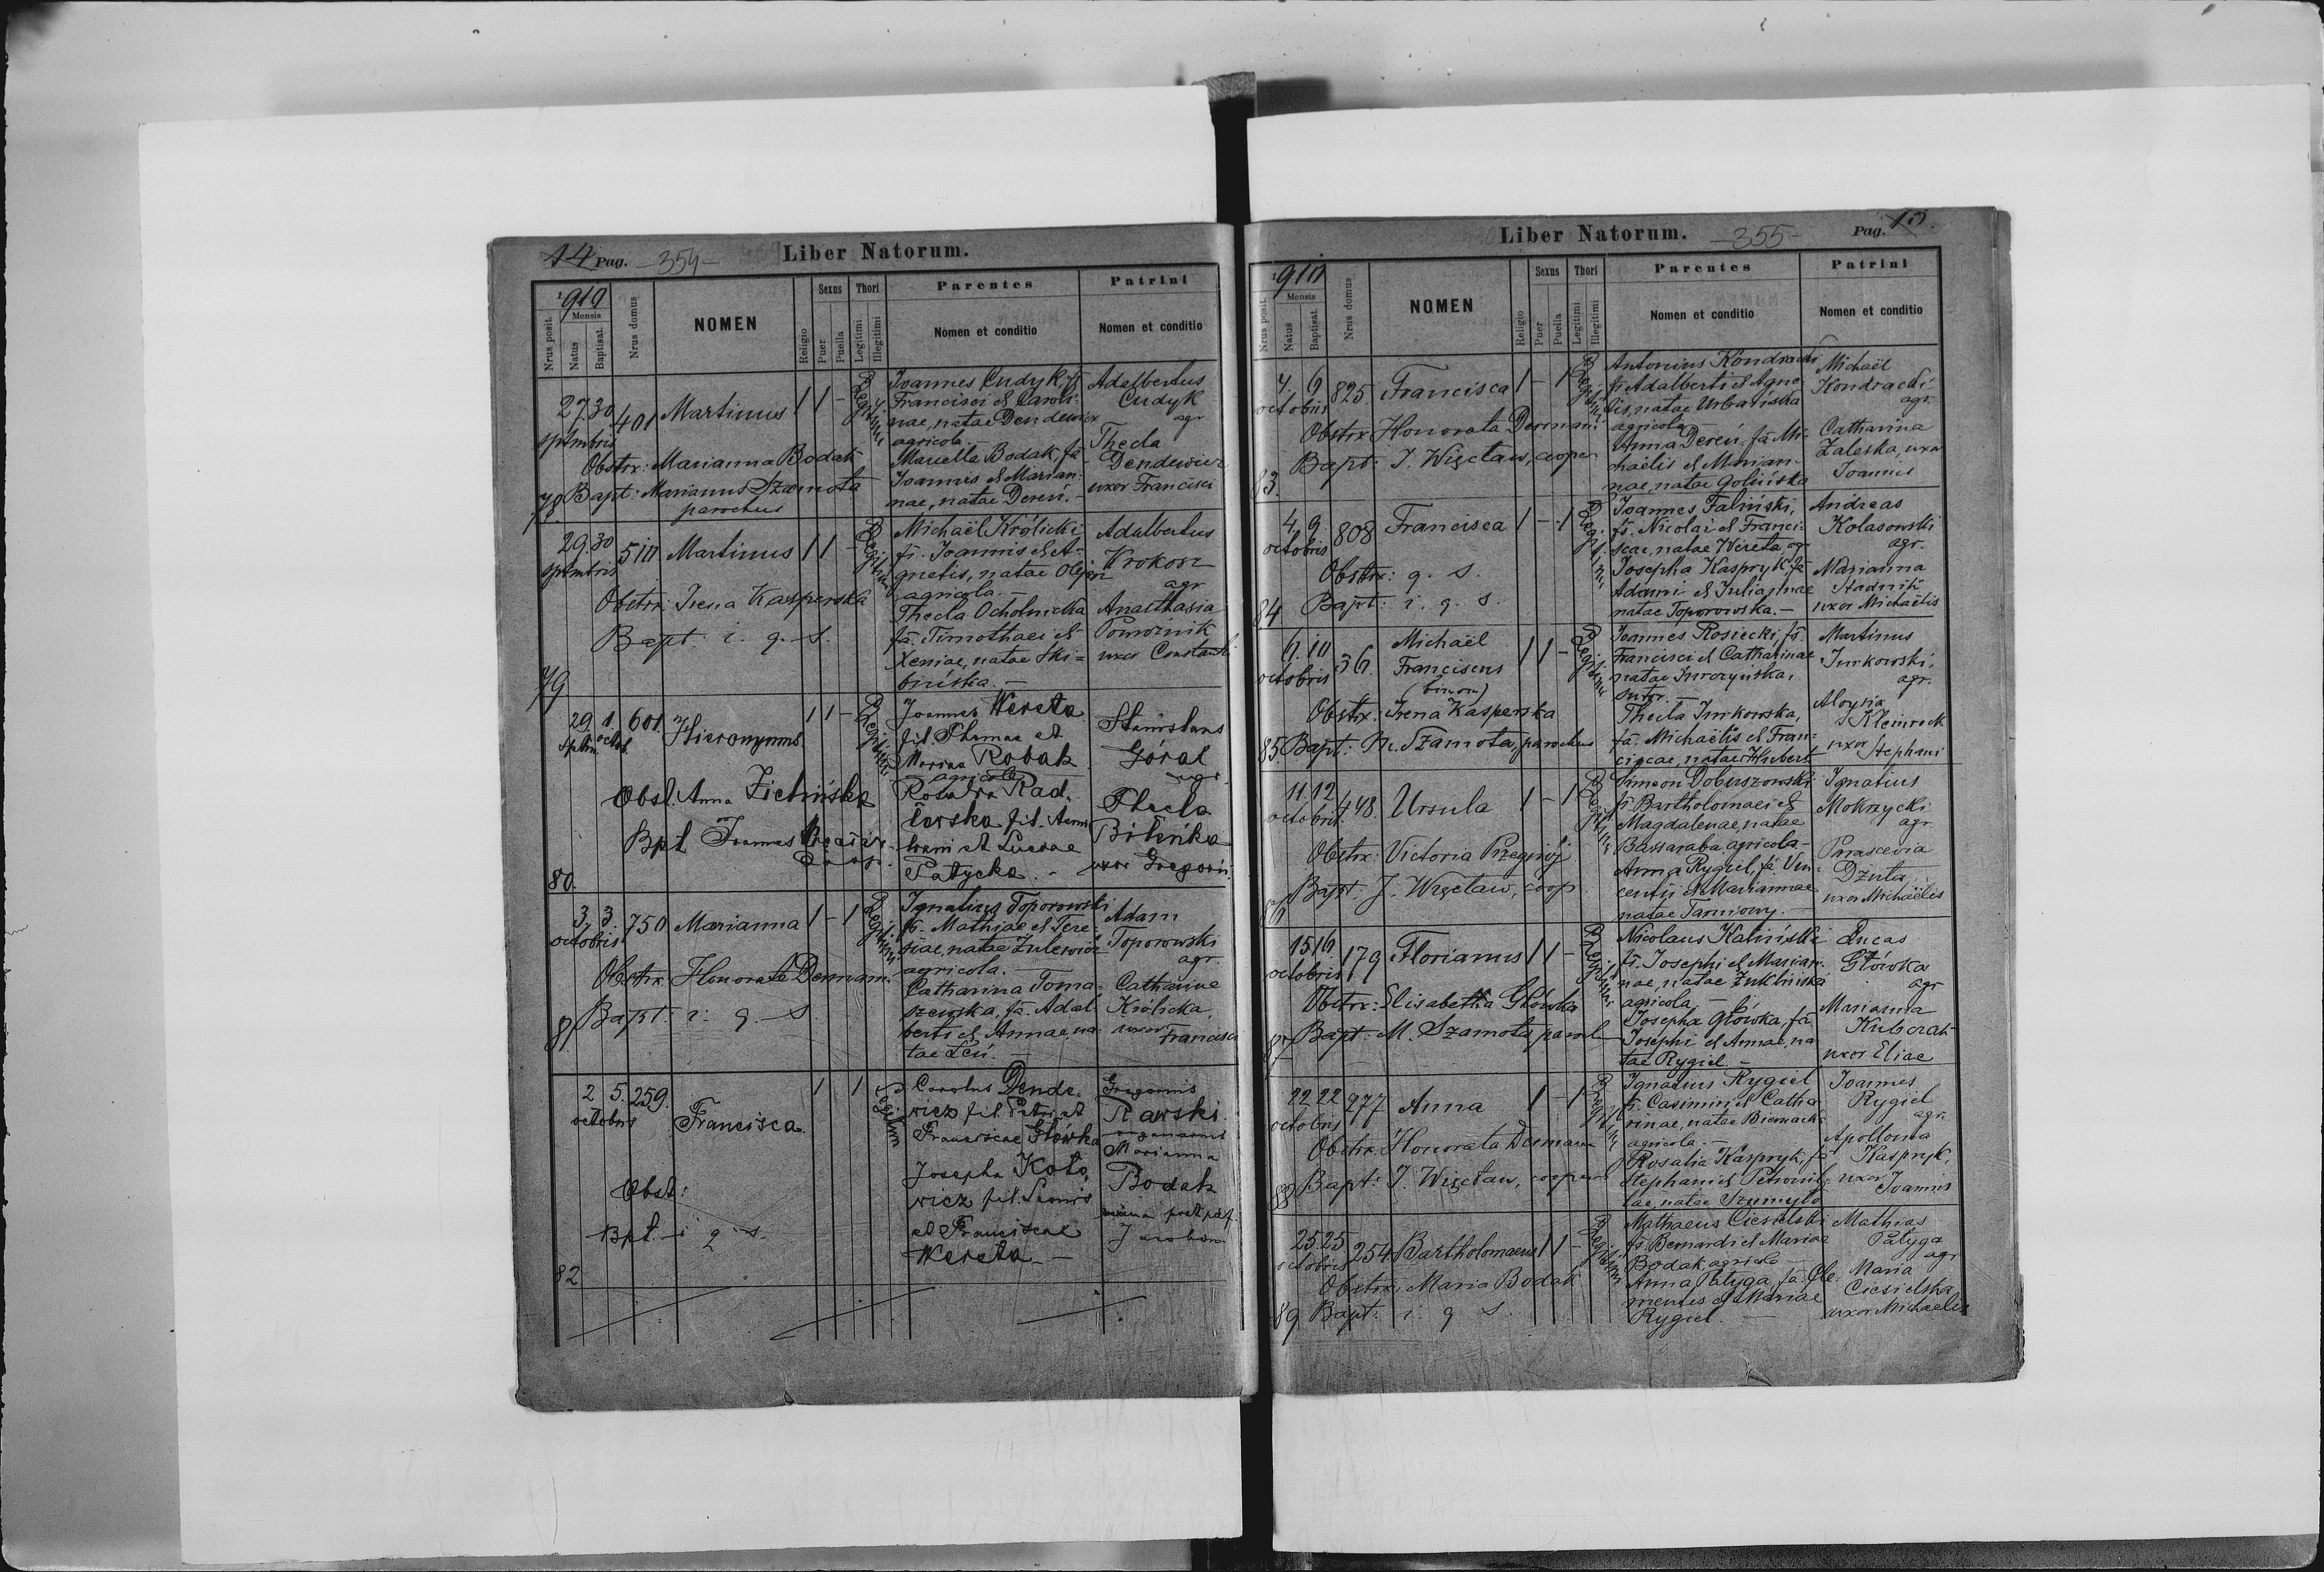 14 Pag. -354-
Liber Natorum.
1910
Nrus posit.
Mensis
Natus
Baptisat.
Nrus domus
NOMEN
Religio
Sexus
Puer
Puella
Thori
Legitimi
Illegitimi
Parentes
Nomen et conditio
Patrini
Nomen et conditio
78.
27. 30
sptmbris
401
Martinus
1 1 -
Legitimi
Obstrx: Marianna Bodak
Bapt: Marianus Szamota
parochus
Joannes Cudyk, fs
Francisci et Caroli-
nae, natae Dendewicz
agricola. -
Marcella Bodak, fa
Joannis et Marian-
nae, natae Dereń.
Adalbertus
Cudyk
agr
Thecla
Dendewicz
uxor Francisci
79
29. 30
sptmbris
510
Martinus
1 1 -
Legitimi
Obstrx: Irena Kasperska
Bapt. i. q. s.
Michaël Królicki
fs. Joannis et A-
gnetis, natae Olejarz
agricola. -
Thecla Ocholnicka
fa. Timothaei et
Xeniae, natae Ski=
bińska. -
Adalbertus
Krokosz
agr
Anasthasia
Pomoinik
uxor Constanti
80.
29. 1.
Sptm. octob.
601.
Hieronymus.
1 1 -
Legitimi
Obst. Anna Zielińska
Bpt Joannes
coop.
Joannes Wereta
fil. Thomae et
Marina Robak
agricola
Rosalia Rad.
larska fil. Anto
et Lucae
Patycka. -
Stanislaus
Góral
agr
Thecla
Bileńka
uxor Gregorii.
81.
3. 3.
octobris
750
Marianna
1 - 1
Legitimi
Obstrx. Honorata Dermani
Bapt: i. q. s
Ignatius Toporowski
fs. Mathiae et Tere-
siae, natae Zulewicz
agricola. -
Catharina Toma-
szewska, fa. Adal-
berti et Annae, na-
tae Leń. -
Adam
Toporowski
agr.
Catharine
Królicka,
uxor
Francisci
82
2 5.
octobris
259.
Francisca.
1 1
Legitimi
Obst:
Bpt. i q s.
Carolus Dende.
wicz fil. Petri et
Franciscae Główka
Josepha Koto,
wicz fil. Leonis
et Franciscae
Wereta -
Gregorius
Rawski
Marianna
Bodak
Jacobum
Liber Natorum. -355-
Pag. 15.
1910
Nrus posit.
Mensis
Natus
Baptisat.
Nrus domus
NOMEN
Religio
Sexus
Puer
Puella
Thori
Legitimi
Illegitimi
Parentes
Nomen et conditio
Patrini
Nomen et conditio
83.
4. 6
octobris
825.
Francisca
1 - 1
Legitimi
Obstrx Honorata Dermani
Bapt: J. Więcław, cooper
Antonius Kondracki
fs. Adalberti et Agne-
tis, natae Urbańska
agricola
Anna Dereń, fa Mi-
chaëlis et Marian-
nae, natae Golińska
Michaël
Kondracki-
agr.
Catharina
Zaleska, uxor
Joannis
84
4. 9.
octobris
808
Francisca
1 - 1
Legitimi
Obstrx: q. s.
Bapt: i. q. s.
Joannes Faliński,
fs. Nicolai et Franci-
scae, natae Wereta, agr
Josepha Kaspryk fa
Adami et Julianae
natae Toporowska. -
Andreas
Kolasowski
agr.
Marianna
Stadnik
uxor Michaëlis
85.
6. 10
octobris
36.
Michaël
Franciscus
(binom)
1 1 -
Legitimi
Obstrx: Irena Kasperska
Bapt: M. Szamota, parochus
Joannes Rosiecki, fs.
Francisci et Catharinae
natae Jurczyńska,
sutor. -
Thecla Jurkowska,
fa. Michaëlis et Fran-
ciscae, natae Hubert
Martinus
Jurkowski,
agr.
Aloysia
Kleinrock
uxor Stephani
86
11 12
octobris
448.
Ursula
1 - 1
Legitimi
Obstrx: Victoria Przegroj
Bapt: J. Więcław, coop
Simeon Doboszowski
fs Bartholomaei et
Magdalenae, natae
Bassaraba agricola -
Anna Rygiel, fa Vin-
centii et Mariannae
natae Tarniowy. -
Ignatius
Mokrzycki
agr
Parascevia
Dziuta
uxor Michaëlis
87
15 16
octobris
179
Florianus
1 1 -
Legitimi
Obstrx: Elisabetha Główka
Bapt: M. Szamota, paroch
Nicolaus Kaliński
fs. Josephi et Marian-
nae, natae Zuklińska
agricola, -
Josepha Główka, fa
Josephi et Annae, na
tae Rygiel. -
Lucas
Główka
agr
Marianna
Kubczak
uxor Eliae
88
22 22
octobris
277
Anna
1 - 1
Legitimi
Obstrx. Honorata Dermani
Bapt: J. Więcław, cooper
Ignatius Rygiel
fs. Casimiri et Catha
rinae, natae Biernacka
agricola. -
Rosalia Kaspryk, fa
Stephani et Petronil-
lae, natae Szumylo
Joannes
Rygiel
agr.
Apollonia
Kaspryk,
uxor
Joannis
89
25. 25
octobris
254.
Bartholomaeus
1 1 -
Legitimi
Obstrx: Maria Bodak
Bapt: i. q s.
Mathaeus Ciesielski
fs. Bernardi et Mariae
Bodak, agricola -
Anna Patyga, fa. Cle-
mentis et Mariae
Rygiel. -
Mathias
Patyga
agr
Maria
Ciesielska
uxor Michaelis